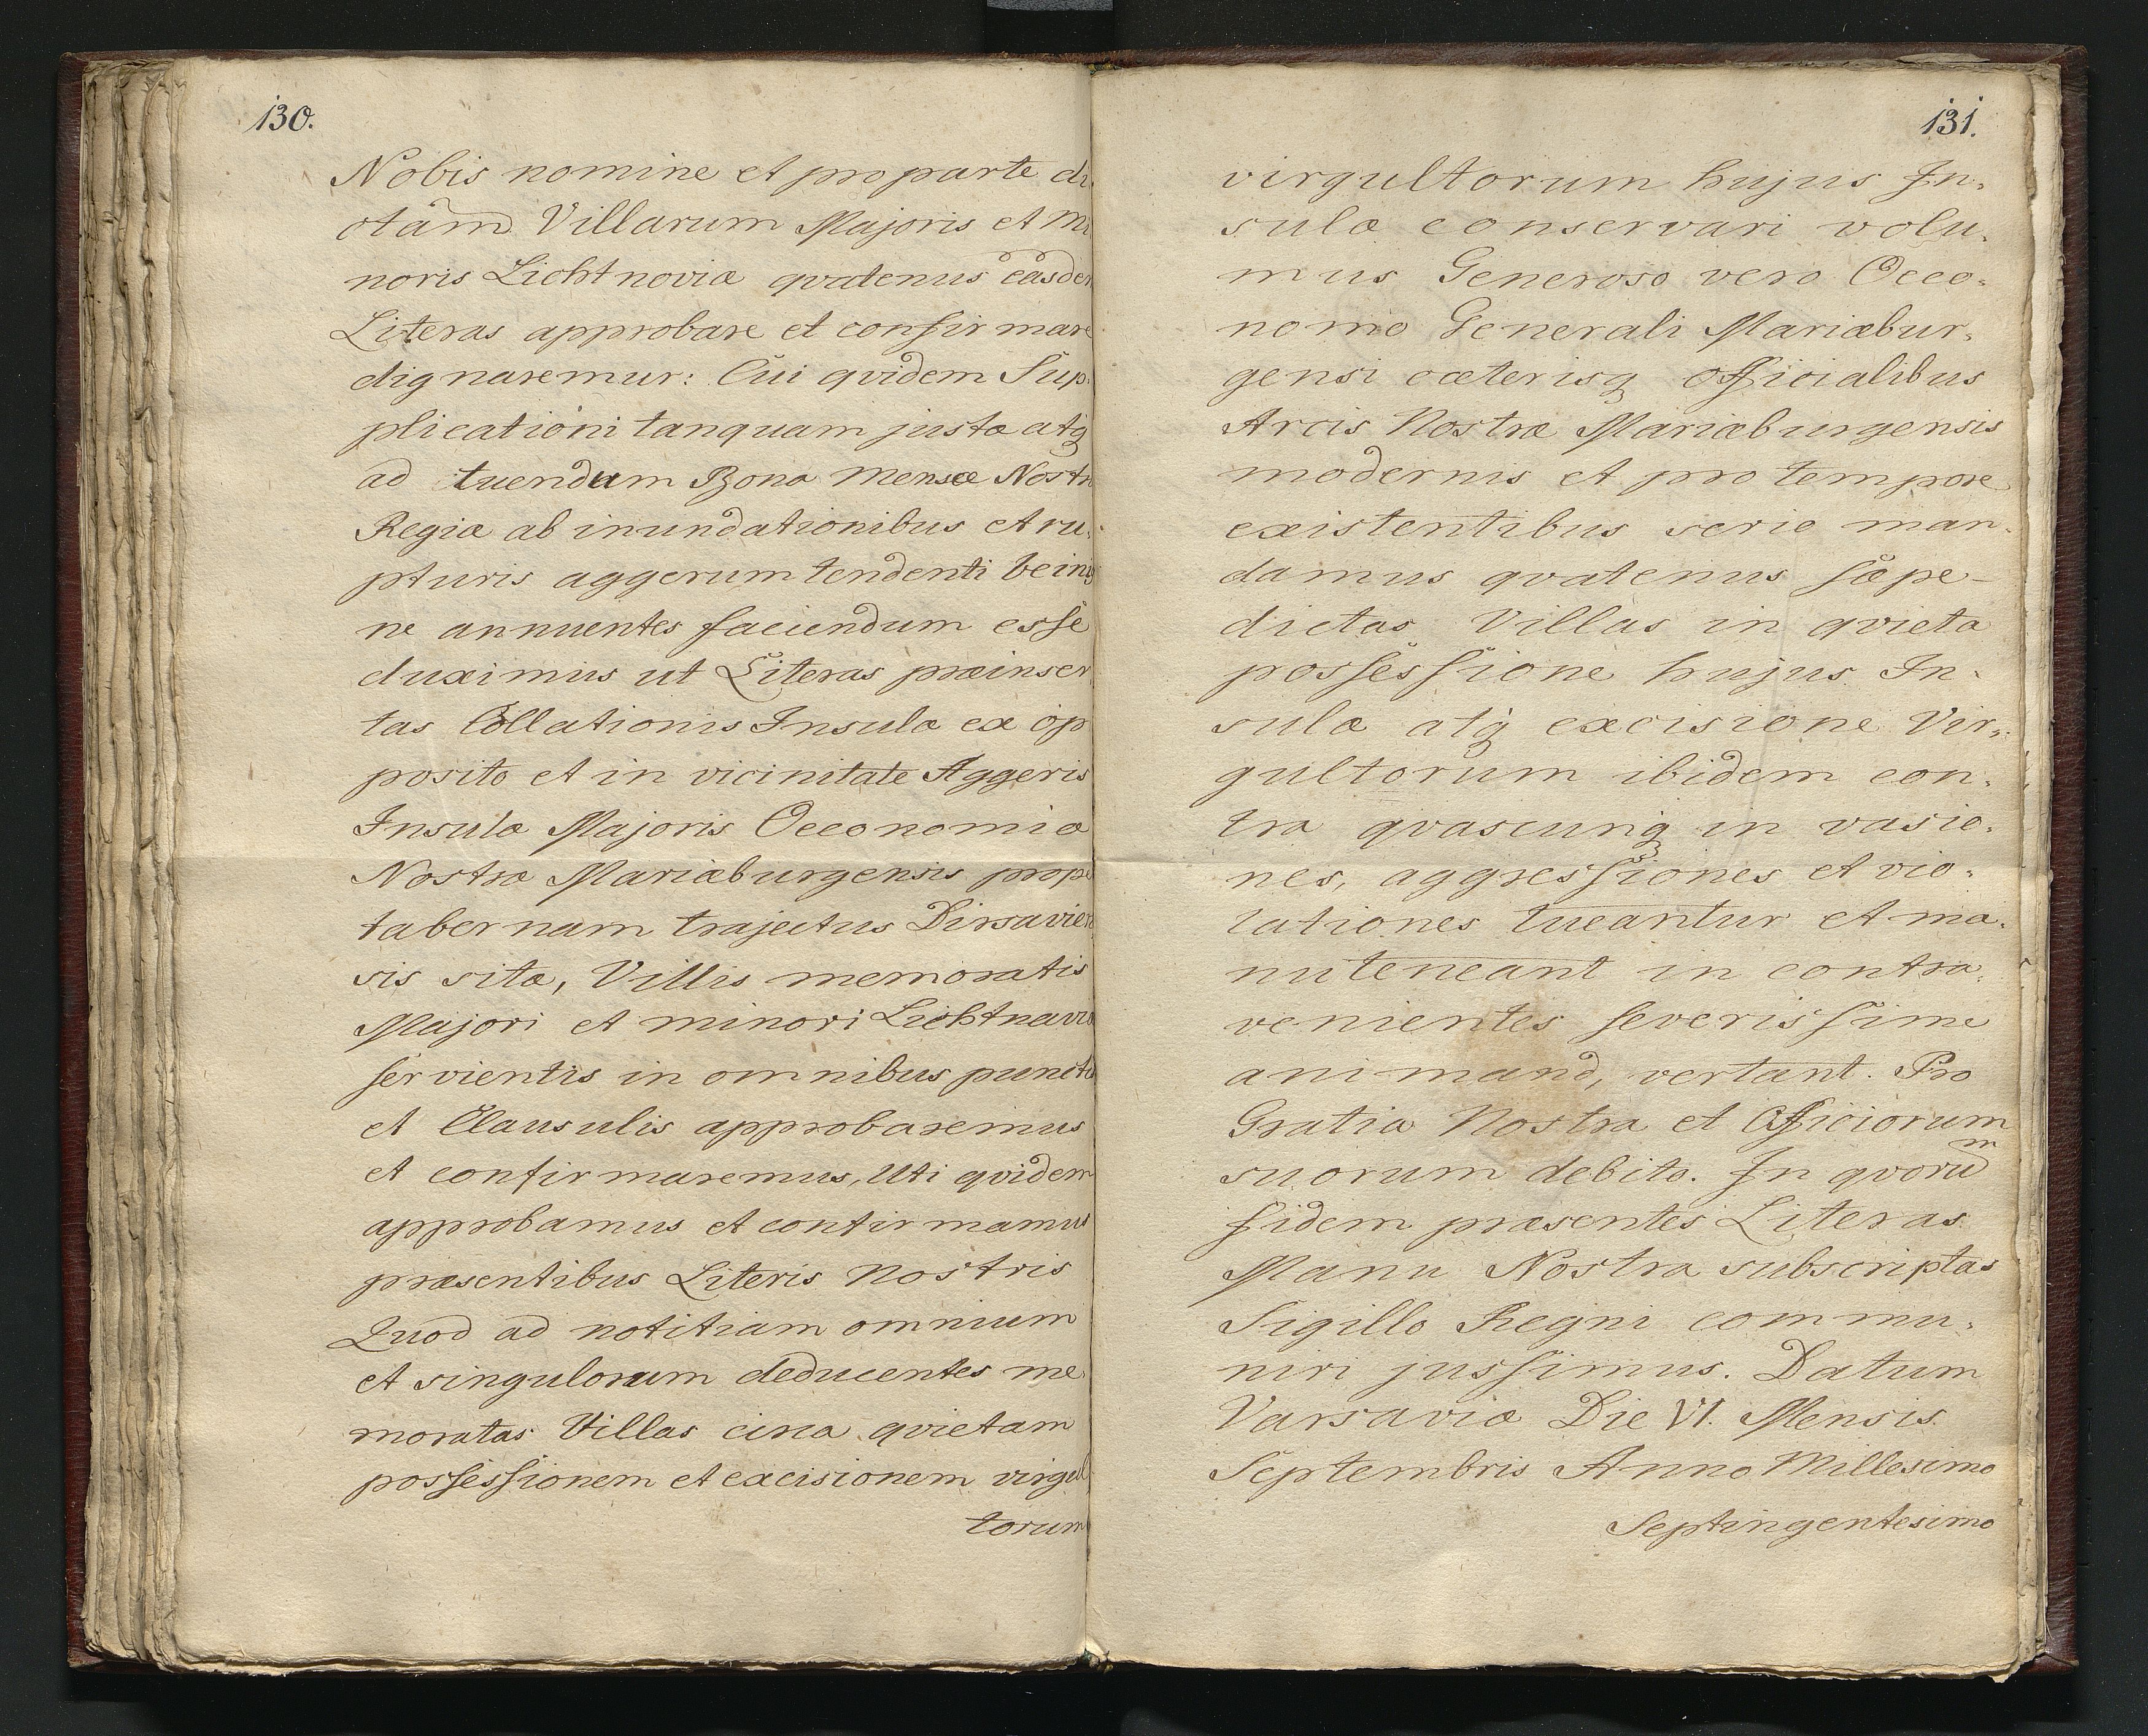 130.
Nobis nomine et pro parte di
ctarum Villarum Majoris et Mi
noris Lichtnoviæ qvatenus easdem
Literas approbare et confirmare
dignaremur: Cui qvidem Sup
plicationi tanquam justæ atq
ad tuendum Bona Mensæ Nostræ
Regiæ ab inundationibus et ru
pturis aggerum tendenti benig
ne annuentes faciendum esse
duximus ut Literas præinser
tas Collationis Insulæ ex op
posito et in vicinitate Aggeris
Insulæ Majoris Oeconomiæ
Nostræ Mariæburgensis prope
tabernam trajectus Dirsavien
sis sitæ, Villis memoratis
Majori et minori Lichtnaviæ
servientis in omnibus punctis
et Clausulis approbaremus
et confirmaremus, Uti qvidem
approbamus et confirmamus
præsentibus Literis Nostris
Quod ad notitiam omnium
et singulorum deducentes me
moratas Villas circa qvietam
possessionem et excisionem virgul
torum
131.
virgultorum hujus In-
sulæ conservari volu-
mus Generoso vero Oeco-
nomo Generali Mariæbur-
gensi cæterisq Officialibus
Arcis Nostræ Mariæburgensis
modernis et pro tempore
existentibus serio man-
damus qvatenus sæpe-
dictas Villas in qvieta
possessione hujus In-
sulæ atq excisione Vir-
gultorum ibidem con-
tra qvascunq invasio-
nes, aggressiones et vio-
lationes tueantur et ma-
nuteneant in contra-
venientes severissime
animand, vertant. Pro
Gratia Nostra et Officiorum
suorum debito. In qvorum
fidem præsentes Literas
Manu Nostra subscriptas
Sigillo Regni commu-
niri jussimus. Datum
Varsaviæ Die VI. Mensis
Septembris Anno Millesimo
Septingentesimo